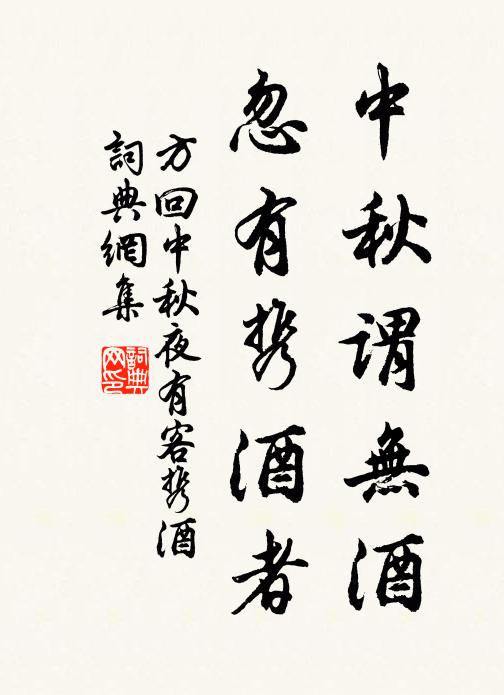 中秋謂無酒
忽有携酒者
方回中秋夜有客携酒
詞典網集
詞典網印